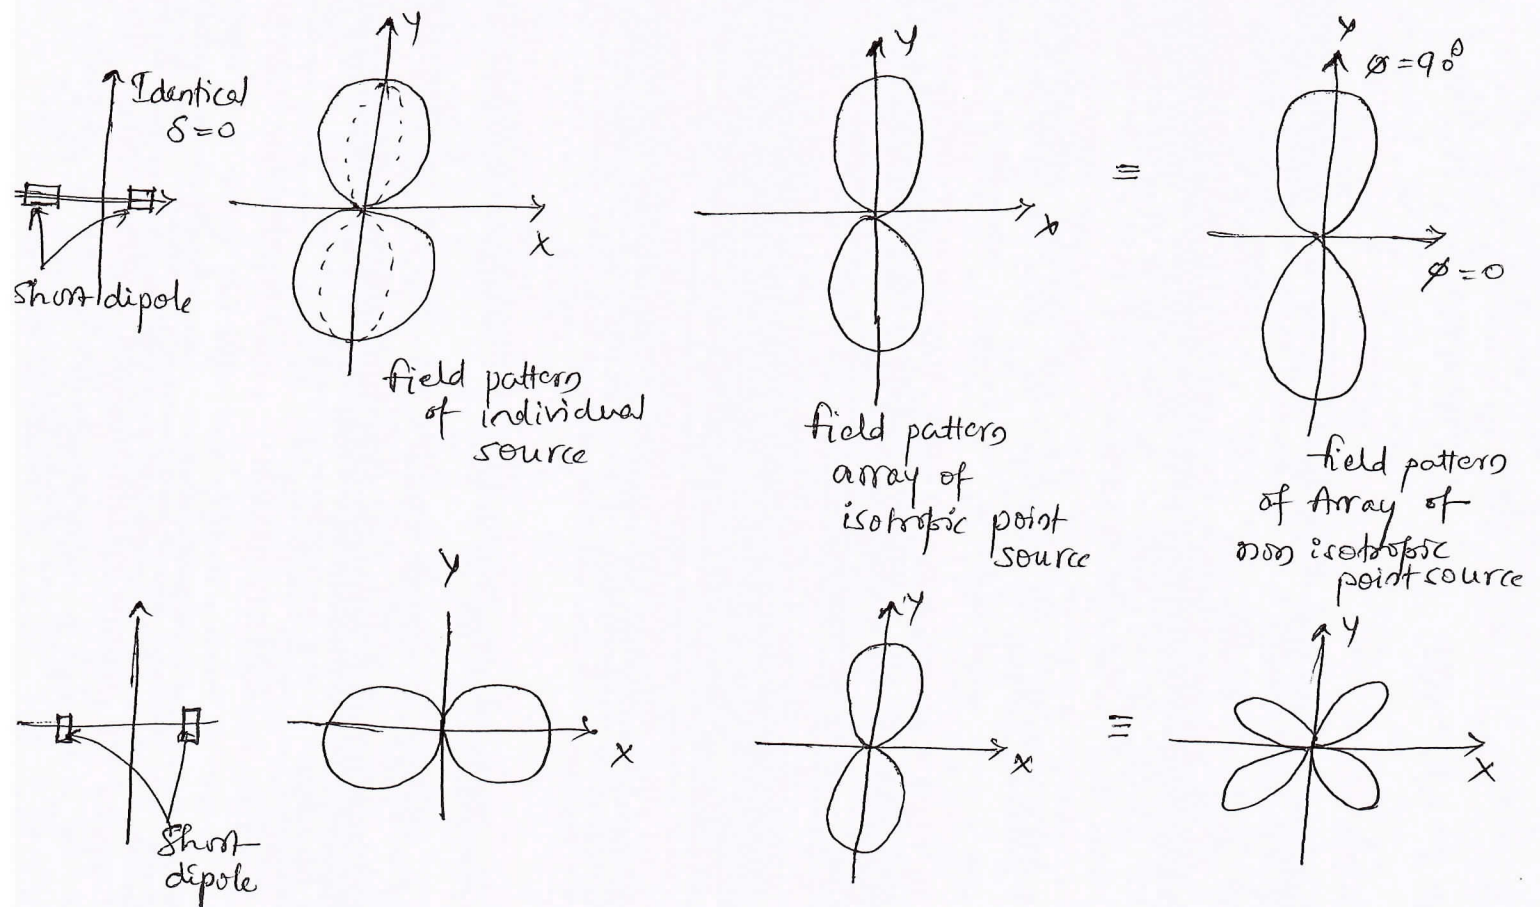 Y
Identical
δ=0
X
Short dipole
field pattern
of individual
source
Y
X
field pattern
array of
isotropic point
source
≡
Y
φ=90°
φ=0
field pattern
of Array of
non isotropic
point source
Short
dipole
Y
X
Y
X
≡
Y
X